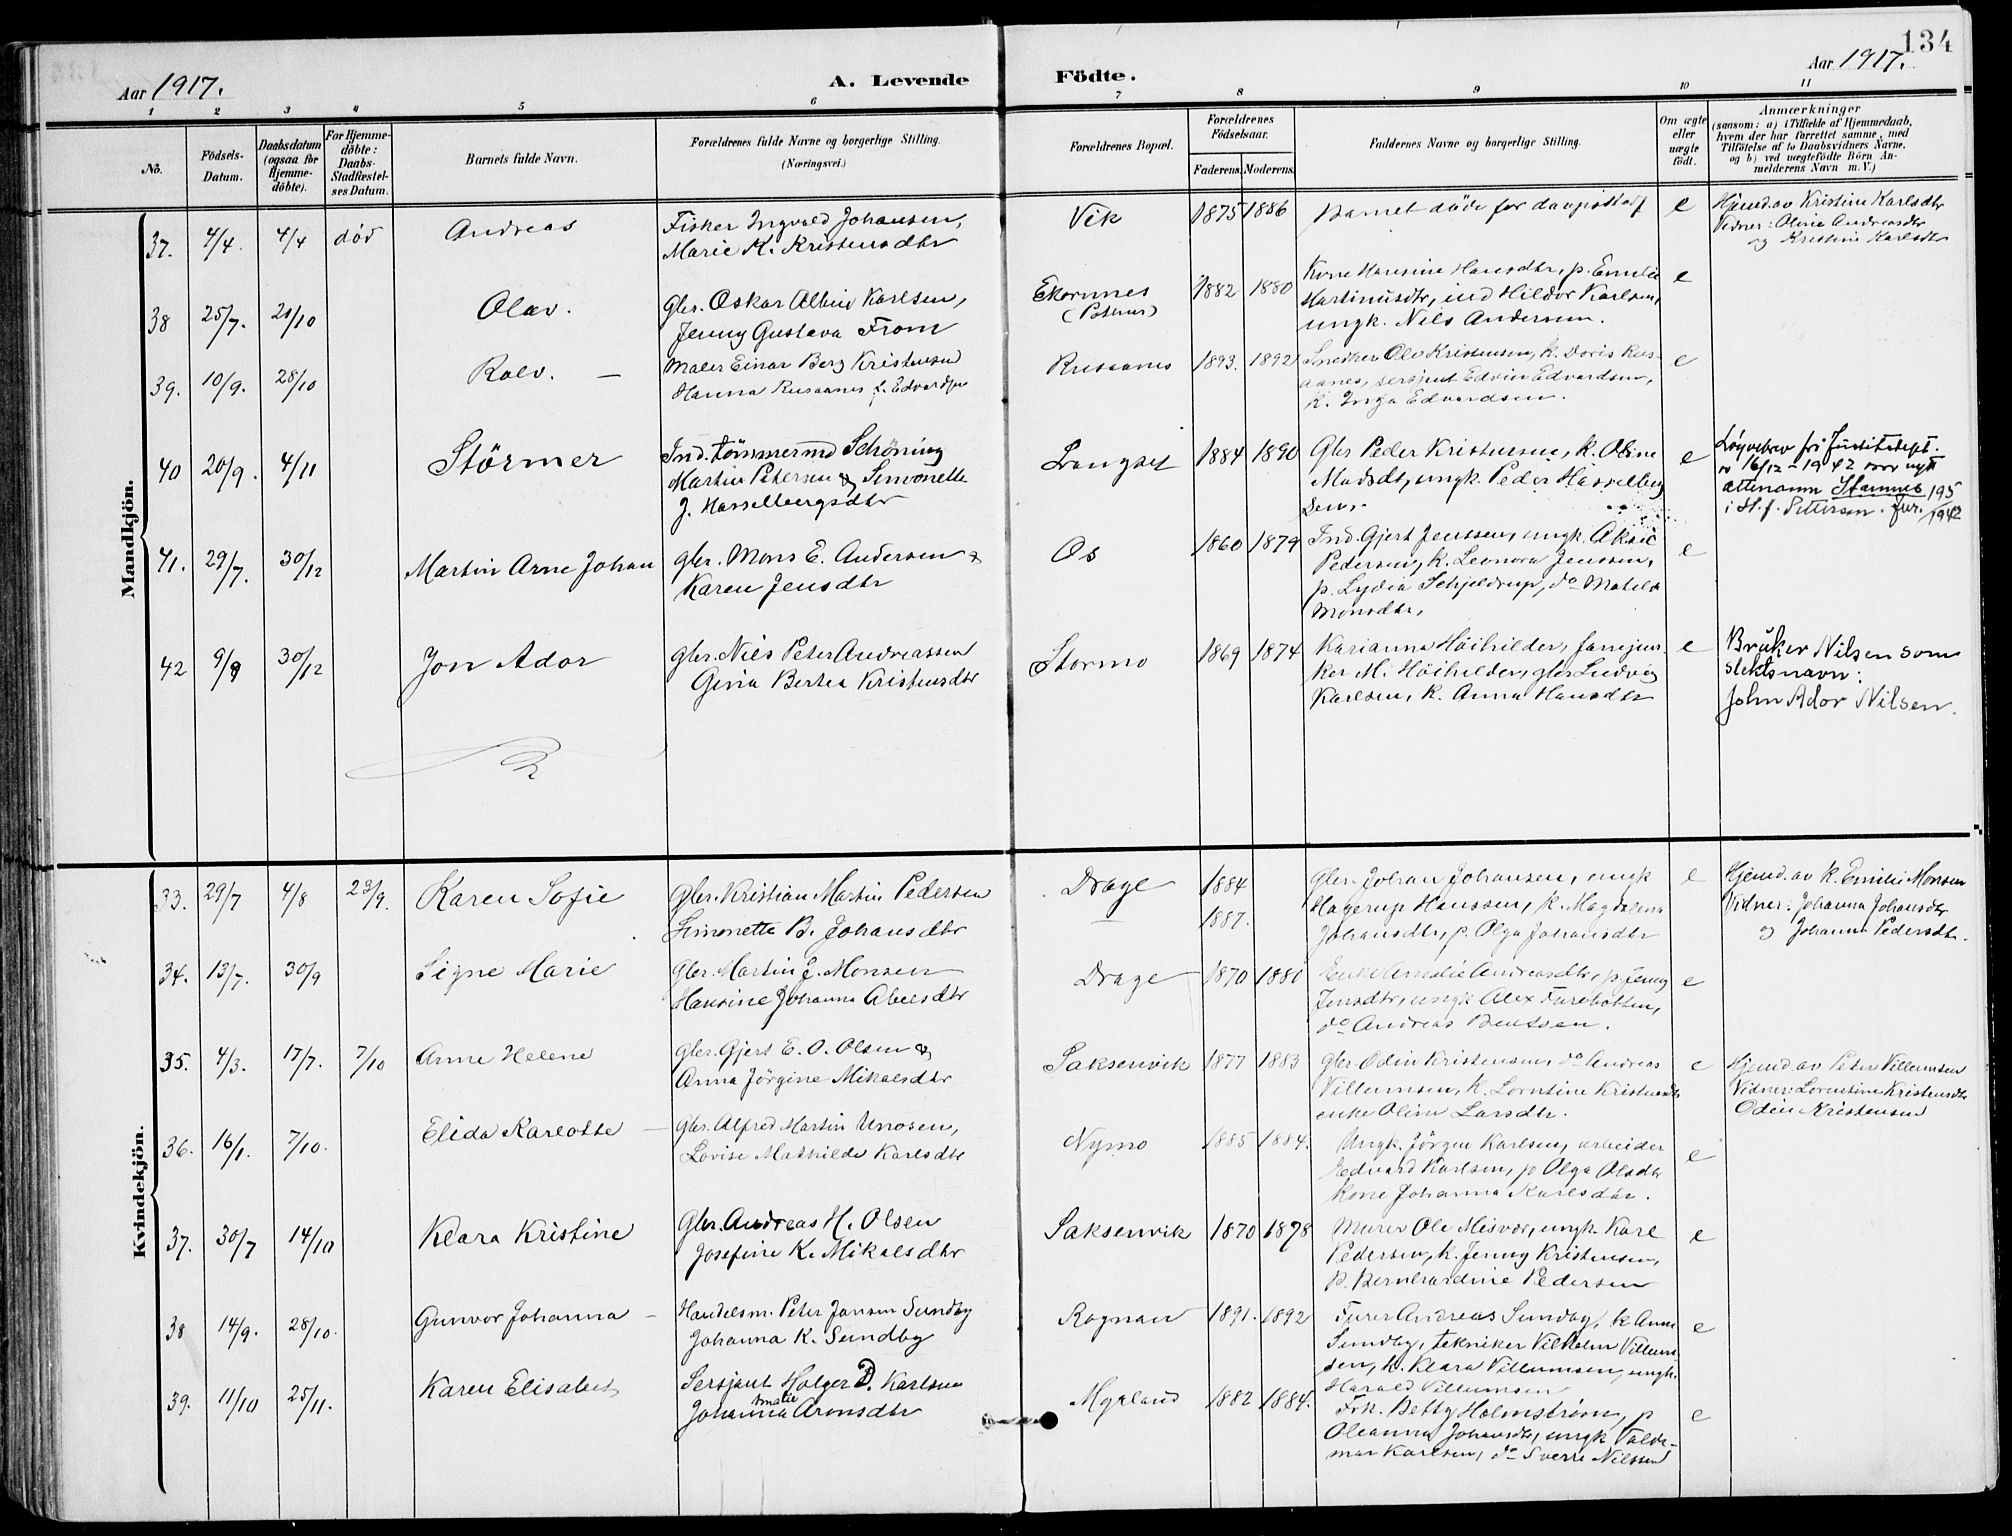 134
Aar 1917.
A. Levende Födte.
Aar 1917.
1 2 3 4 5 6 7 8 9 10 11
No.
Födsels-Datum.
Daabsdatum (ogsaa for Hjemme-döbte).
For Hjemme-döbte: Daabs-Stadfæstel-ses Datum.
Barnets fulde Navn.
Forældrenes fulde Navne og borgerlige Stilling. (Næringsvei.)
Forældrenes Bopæl.
Forældrenes Födselsaar.
Faderens. Moderens.
Faddernes Navne og borgerlige Stilling.
Om ægte eller uægte födt.
Anmærkninger
(saasom: a) i Tilfælde af Hjemmedaab,
hvem der har forrettet samme, med
Tilföielse af to Daabsvidners Navne,
og b) ved uægtefödte Börn An-
melderens Navn m. V.)
Mandkjön.
37. 4/4. 4/4 död Andreas
Fisker Ingvald Johansen,
Marie K. Kristensdtr
Vik 1875 1886 Barnet döde før e
Hjemd. av Kristine Karlsdtr
Vidner: Oline Andreasdtr
og Kristine Karlsdtr
38 25/7. 21/10 Olav.
Gbr. Oskar Albin Karlsen,
Jenny Gustava From
Ekornnes 1882 1880
Kone Hansine Hansdtr, p. Emilie
Martinusdtr, ind Hildor Karlsen,
ungk. Nils Andersen.
e
39. 10/9. 28/10 Rolv. —
Maler Einar Berg Kristensen
Hanna Rusaanes f. Edvardsen
Rusaanes 1893. 1892
Snedker Ole Kristensen, k. Doris Rus-
aanes, sersjent Edvin Edvardsen,
k. Inga Edvardsen.
e
40 20/9. 4/11 Störmer
Ind. tömmermd Schöning
Martin Petersen & Simonette
J. Hasselbergsdtr
Langset 1884 1890
Gbr Peder Kristensen, k. Oline
Madsdtr, ungk. Peder Hasselberg
sen.
e
Løyvebrev frå Justitsdept.
16/12 - 1942 nytt
ættenamn Stamnes 195
1942
41. 29/7. 30/12 Martin Arne Johan
Gbr. Mons E. Andersen &
Karen Jensdtr
Os 1860 1879
Ind. Gjert Jenssen, ungk. Aksel
Pedersen, k. Leonora Jenssen,
p. Lydia Schjeldrup, do Matilde
Monsdtr,
e
42 9/9 30/12 Jon Ador
Gbr. Nils Peter Andreassen
Gina Bertea Kristensdtr
Stormo 1869 1874
Karianna Höihilder,
ker M. Höihilder, gbr Ludvig
Karlsen, k. Anna Hansdtr
e
Bruker Nilsen som
slektsnavn:
John Ador Nilsen.
Kvindekjön.
33. 29/7 4/8 23/9. Karen Sofie
Gbr. Kristian Martin Pedersen
Simonette B. Johansdtr
Drage 1884
1887.
Gbr. Johan Johansen, ungk
Hagerup Hanssen, k. Magdalena
Johansdtr, p. Olga Johansdtr
e
Hjemd. av k. Emilie Monsen
Vidner: Johanna Johansdtr
og Johanna Pedersdtr.
34. 13/7. 30/9 Signe Marie
Gbr. Martin J. Monsen
Hansine Johanna Abelsdtr
Drage 1870 1881
Enke Amalie Andreasdtr, p. Jenny
Jensdtr, ungk Alex Furebotten,
do Andreas Bentsen.
e
35. 4/3. 17/7. 7/10 Anne Helene
Gbr. Gjert E. O. Olsen &
Anna Jörgine Mikalsdtr
Saksenvik 1877 1883
Gbr. Odin Kristensen, do Andreas
Villumsen, k. Lorntine Kristensdtr
enke Oline Larsdtr.
e
Hjemd av Peter Villumsen
Vidner: Lorentine Kristensdtr
Odin Kristensen
36. 16/1. 7/10. Elida Karlotte —
Gbr. Alfred Martin Unosen,
Lovise Mathilde Karlsdtr
Nymo 1885 1884.
Ungk. Jörgen Karlsen, arbeider
Edvard Karlsen, p Olga Olsdtr
kone Johanna Karlsdtr.
e
37. 30/7 14/10 Klara Kristine
Gbr. Andreas H. Olsen
Josefine K. Mikalsdtr
Saksenvik 1870 1878
Murer Ole Misvær, ungk. Karl
Pedersen, k. Jenny Kristensen,
p. Bernhardine Pedersen
e
38 14/9. 28/10. Gunvor Johanna —
Handelsm. Peter Jansen Sundby
Johanna K. Sundby
Rognan 1891. 1892
Furer Andreas Sundby, k Anna
Sundby, tekniker Vilhelm Villum-
sen, k. Klara Villumsen, ungk.
Harald Villumsen
e
39. 11/10 25/11. Karen Elisabet
Sersjant Holger D. Karlsen
Johanna Amalie Aronsdtr
Myrland 1882 1884.
Frk. Betty Holmström, p
Oleanna Johansdtr, ungk Valde-
mar Karlsen, do Sverre Nilssen
e